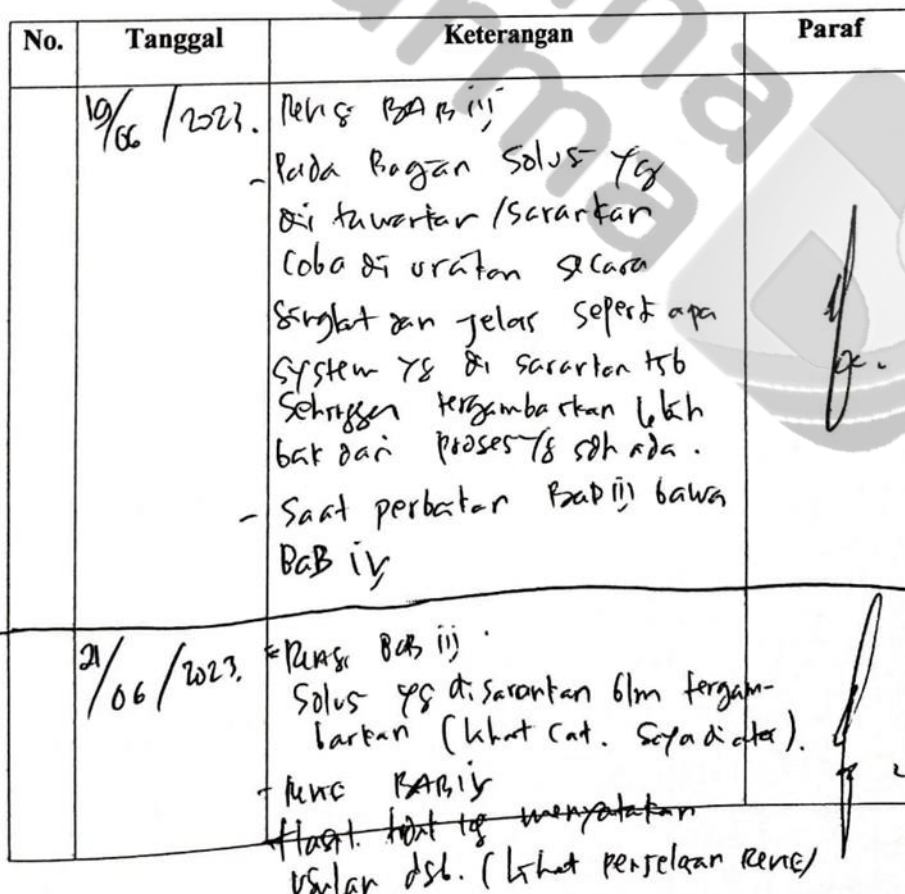 No. Tanggal Keterangan Paraf
19/06/2023. Revisi BAB iii
- Pada Bagian Solusi yg
di tawarkan/sarankan
Coba di uraikan secara
Singkat dan jelas seperti apa
system yg di sarankan tsb
Sehingga tergambarkan lebih
baik dari proses yg sdh ada.
- Saat perbaikan Bab iii bawa
BaB iv
21/06/2023. - Revisi BaB iii.
Solusi yg disarankan blm tergam-
barkan (lihat cat. Saya diatas).
- Revisi BAB iv
Hasil yg menyatakan
usulan dsb. (lihat penjelasan Revisi)